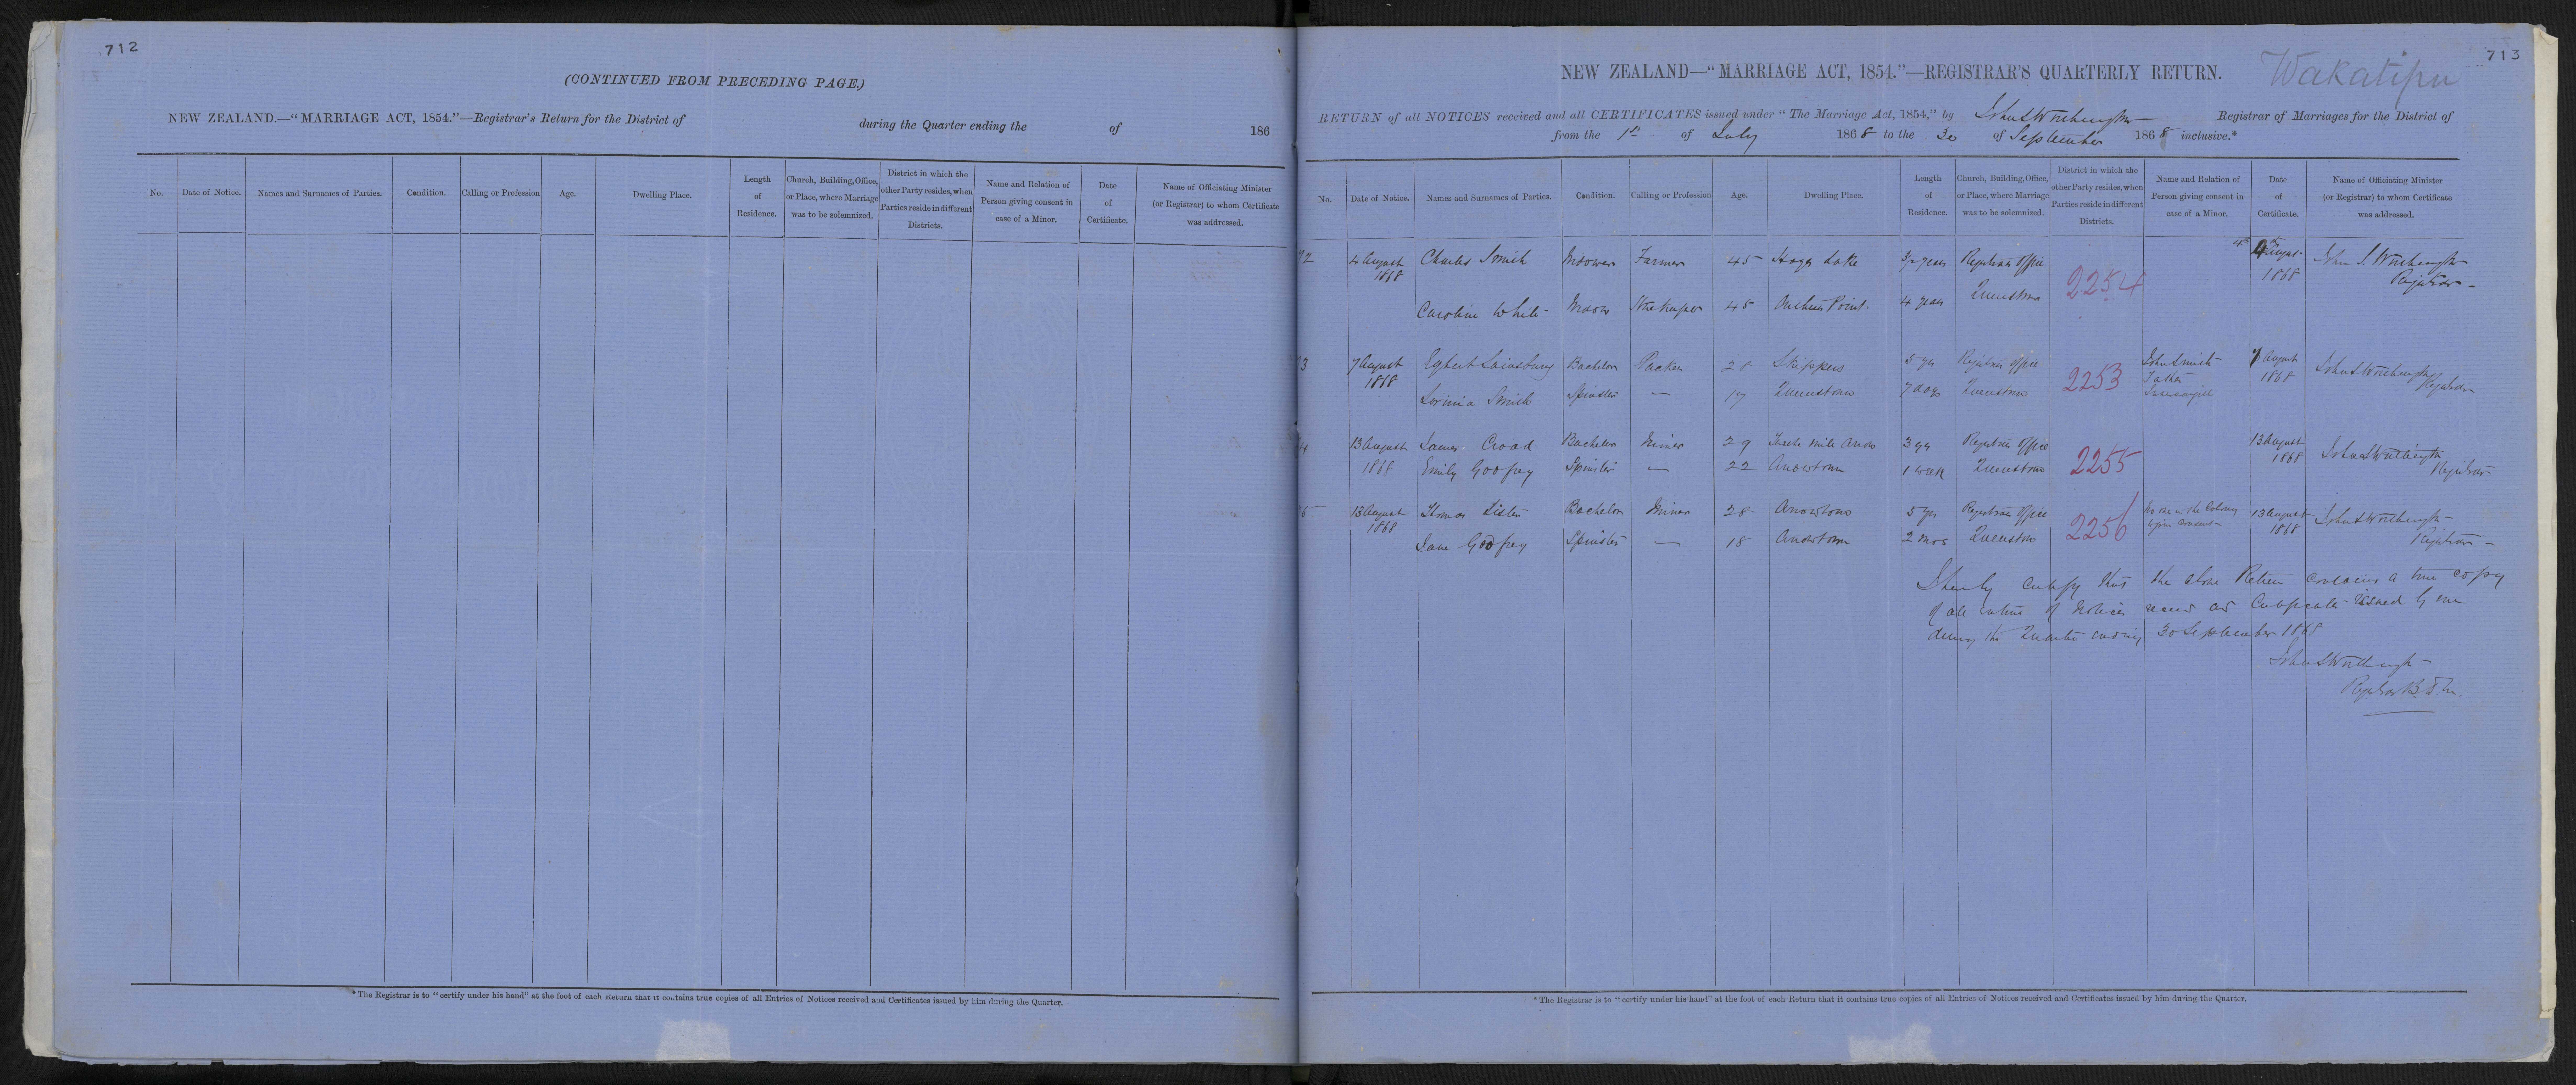 712
(CONTINUED FROM PRECEDING PAGE.)
NEW ZEALAND.—"MARRIAGE ACT, 1854."—Registrar's Return for the District of during the Quarter ending the of 186
No. Date of Notice. Names and Surnames of Parties. Condition. Calling or Profession Age. Dwelling Place. Length of Residence. Church, Building, Office, or Place, where Marriage was to be solemnized. District in which the other Party resides, when Parties reside in different Districts. Name and Relation of Person giving consent in case of a Minor. Date of Certificate. Name of Officiating Minister (or Registrar) to whom Certificate was addressed.
* The Registrar is to "certify under his hand" at the foot of each Return that it contains true copies of all Entries of Notices received and Certificates issued by him during the Quarter.
713
NEW ZEALAND—"MARRIAGE ACT, 1854."—REGISTRAR'S QUARTERLY RETURN. Wakatipu
RETURN of all NOTICES received and all CERTIFICATES issued under "The Marriage Act, 1854," by John S Worthington Registrar of Marriages for the District of
from the 1st of July 1868 to the 30 of September 1868 inclusive.*
No. Date of Notice. Names and Surnames of Parties. Condition. Calling or Profession Age. Dwelling Place. Length of Residence. Church, Building, Office, or Place, where Marriage was to be solemnized. District in which the other Party resides, when Parties reside in different Districts. Name and Relation of Person giving consent in case of a Minor. Date of Certificate. Name of Officiating Minister (or Registrar) to whom Certificate was addressed.
2 4 August Charles Smith Widower Farmer 45 Hayes Lake years Registrars Office 2254 4 August John S Worthington
1868 1868 Registrar
Caroline White Widow 45 Arthurs Point 4 years Queenstown
3 7 August Egbert Sainsbury Bachelor Packer Skippers 5 yrs Registrars Office 2253 John Smith 7 August John S Worthington
1868 Father 1868 Registrar
Smith Spinster — 17 Queenstown 7 days Queenstown Invercargill
4 13 August James Croad Bachelor Miner 29 Twelve mile Arrow 3 yrs Registrars Office 2255 13 August John S Worthington
1868 Emily Godfrey Spinster — 22 Arrowtown 1 week Queenstown 1868 Registrar
5 13 August Thomas Lister Bachelor Miner 28 Arrowtown 5 yrs Registrars Office 2256 No one in the Colony 13 August John S Worthington
1868 consent 1868 Registrar
Jane Godfrey Spinster — 18 Arrowtown 2 mos Queenstown
I hereby certify that the above Return contains a true copy
of all entries of Notices received and Certificates issued by me
during the Quarter ending 30 September 1868
John S Worthington
Registrar
* The Registrar is to "certify under his hand" at the foot of each Return that it contains true copies of all Entries of Notices received and Certificates issued by him during the Quarter.